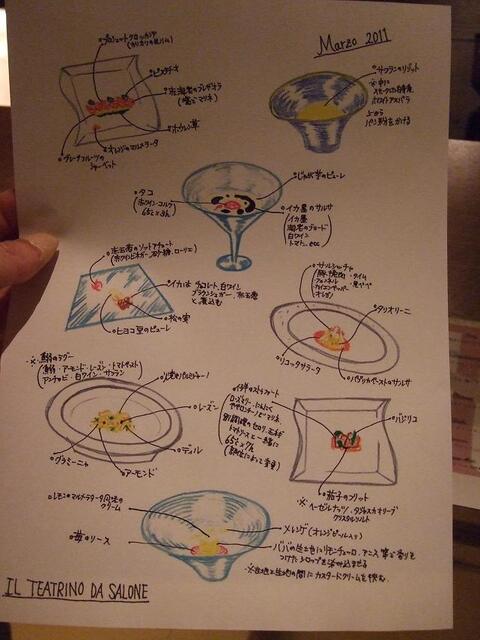 Marzo 2011
プロシュートクロッカンテ
(カリカリの生ハム)
ピスタチオ
赤海老のブレザオラ
(塩でマリネ)
ホウレン草
オレンジのマルメラータ
グレープフルーツの
シャーベット
サフランのリゾット
ホワイトアスパラ
上から
パン粉をかける
じゃが芋のピューレ
タコ
(赤ワイン・コルク
65℃ 3h)
イカ墨のサルサ
イカ墨
海老のブロード
白ワイン
トマト、etc
赤玉ねぎのソットアチェート
(赤ワインビネガー、砂糖、ローリエ)
イカは チョコレート、白ワイン
ブラウンシュガー、赤玉ねぎ
と煮込む
松の実
ヒヨコ豆のピューレ
サルシッチャ
タリオリーニ
リコッタサラータ
パプリカペーストのサルサ
※鰯のラグー
(鰯・アーモンド・レーズン・トマトペースト
アンチョビ・白ワイン・サフラン)
レーズン
ディル
グラミーニャ
アーモンド
仔羊のストラコット
ローズマリー、にんにく
トマトソースと一緒に
65℃ 7h
バジリコ
茄子のフリット
※ヘーゼルナッツ・タジャスカオリーブ
クリスタルソルト
レモンのマルメラータ風味の
クリーム
苺のソース
メレンゲ(オレンジピール入り)
ババの生地にリモンチェーロ、アニス等で香りを
つけたシロップを染み込ませる
※生地と生地の間にカスタードクリームを挟む。
IL TEATRINO DA SALONE